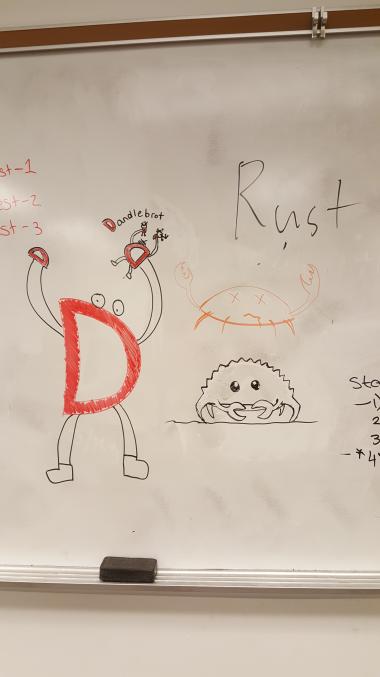 st-1
est-2
st-3
Dandlebrot
Rust
D
D
D
Sta
-1)
2
3
-*4